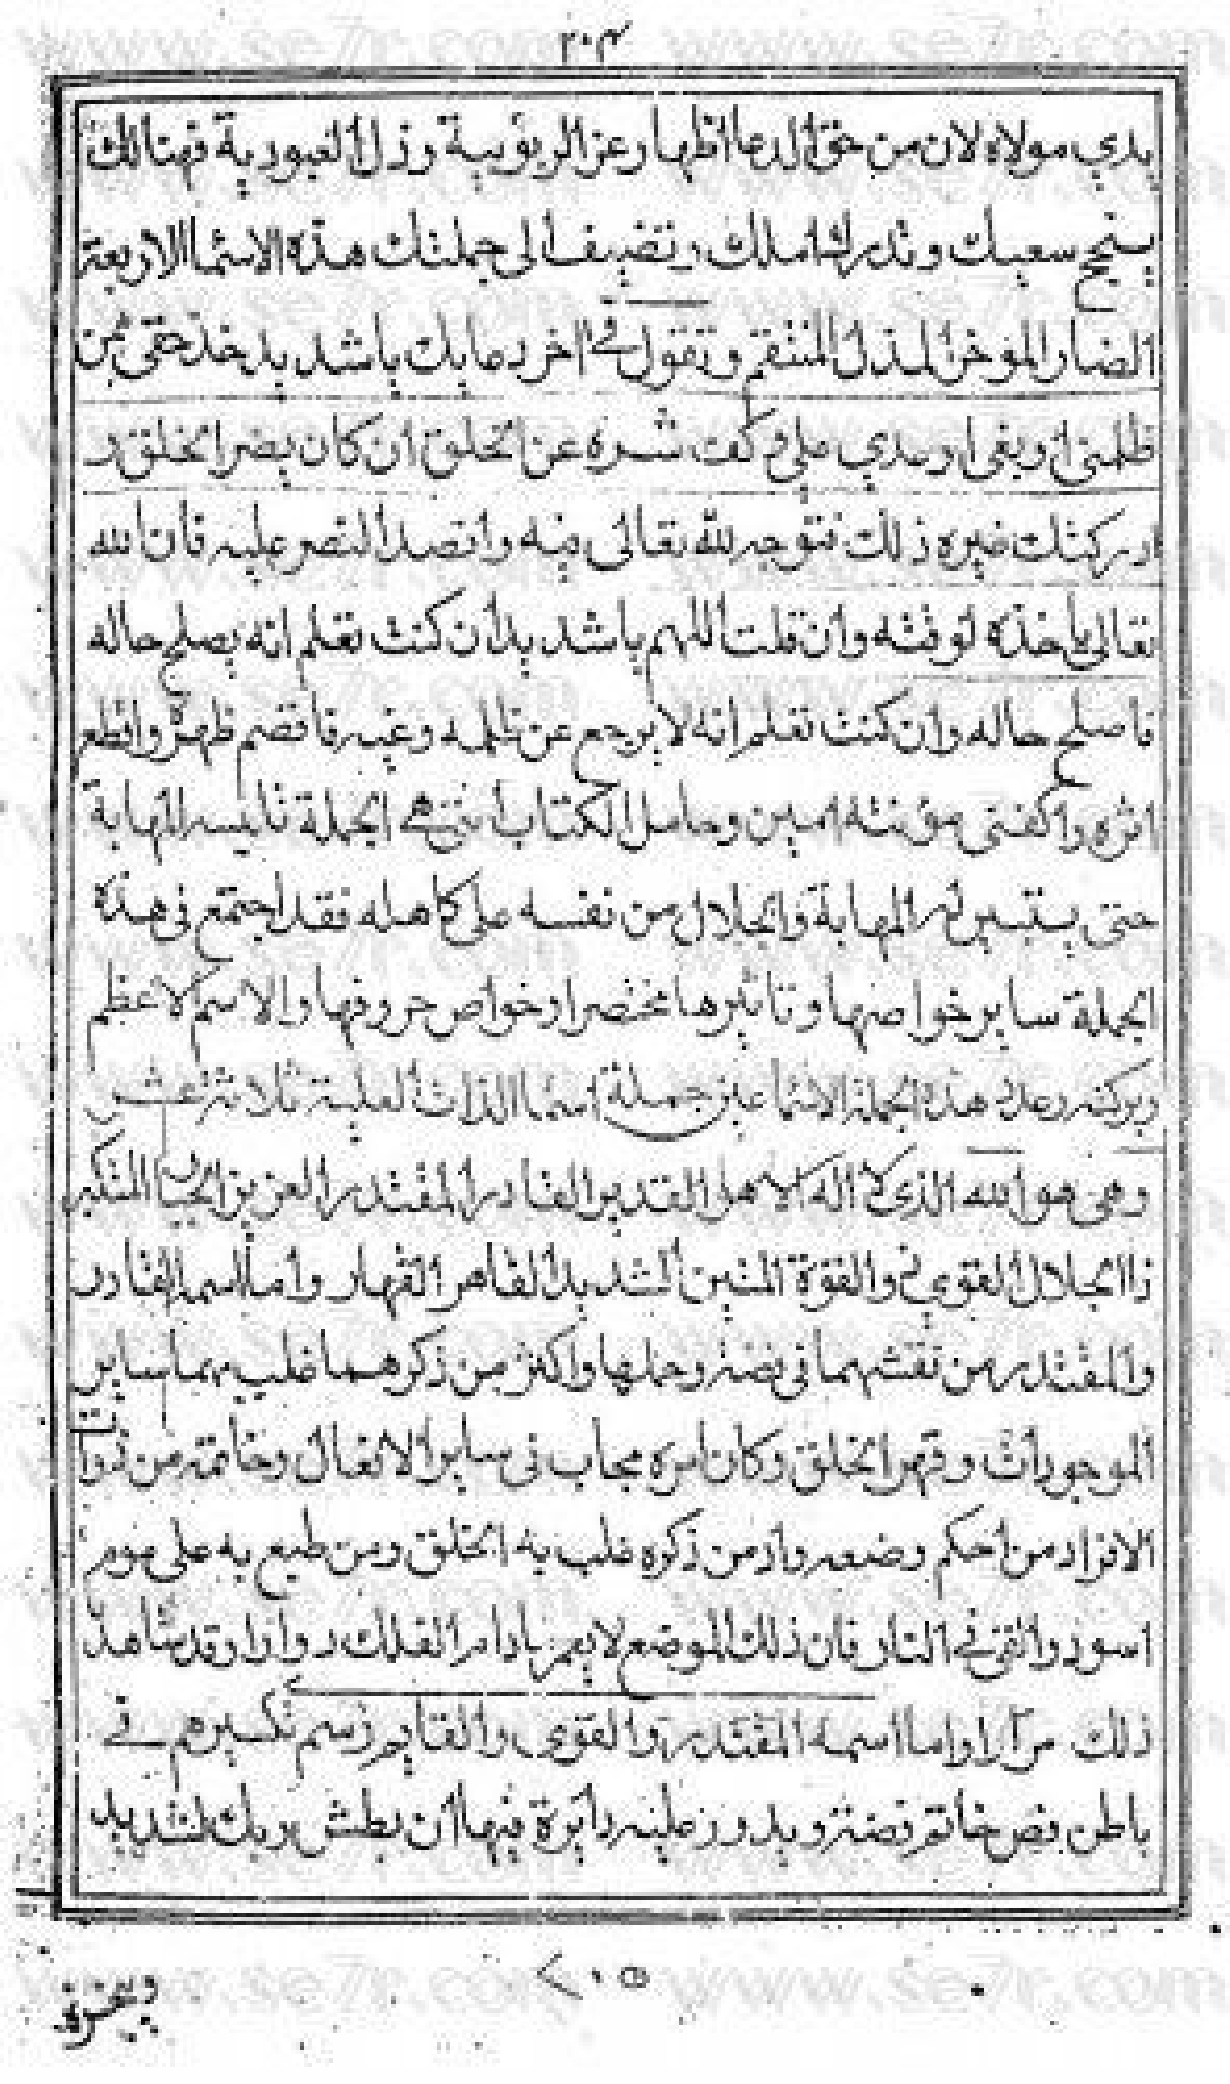 ٢٠٤
يدي مولاه لان من حق الدعا اظهار عز الربوبية وذل العبودية فهنالك
ينجح سعيك وتدرك املك وتضيف الى جملتك هذه الاسما الاربعة
الضار الموخر المذل المنتقم وتقول في اخر دعايك ياشديد خذ حقى ممن
ظلمنى وبغى وعدي على وكفت شره عن الخلق ان كان يضر الخلق
او ركنك غيره ذلك فتوجه لله تعالى فيه واقصد النصر عليه فان الله
تعالى ياخذه لوقته وان قلت اللهم ياشديد ان كنت تعلم انه يصلح حاله
فاصلح حاله وان كنت تعلم انه لا يرجع عن ظلمه وغيه فاقصم ظهره واقطع
اثره واكفنى مؤنته امين وحامل الكتاب الجملة المهابة
حتى المهابة والجلال من نفسه على كاهله فقد اجتمع فى هذه
الجملة ساير خواصها وتاثيرها مختصرا وخواص حروفها والاسم الاعظم
وبركته وعدد هذه الجملة الاسما عين جملة اسما الذات العلية ثلاثة عشر
وهى هو الله الذى لا اله الا هو القدير القادر المقتدر العزيز الجبار المتكبر
ذا الجلال القوي ذو القوة المتين الشديد القاهر القهار واما اسمه القادر
والمقتدر من نقشهما فى فضة وحملها واكثر من ذكرهما غلب بهما ساير
الموجودات وقهر الخلق وكان امره مجاب فى ساير الافعال وخاتمه من ذوات
الافراد من احكم وضعه وادمن ذكره غلب به الخلق ومن طبع به على موم
اسود والقى فى النار فان ذلك الموضع لا يعمر مادام الفلك دوار وقد شاهد
ذلك مرارا واما اسمه المقتدر والقوى والقايم رسم تكسيرهم في
باطن فص خاتم فضة ويدور عليه دايرة فيها ان بطش ربك لشديد
٢٠٥